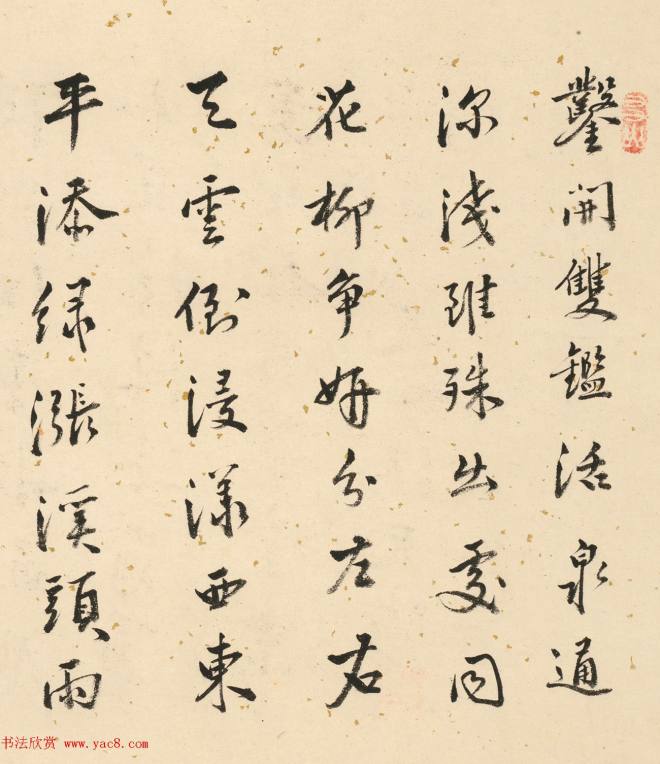 鑿開雙鑑活泉通
深淺雖殊出處同
花柳争妍分左右
天雲倒浸漾西東
平添緑漲溪頭雨
书法欣赏 www.yac8.com